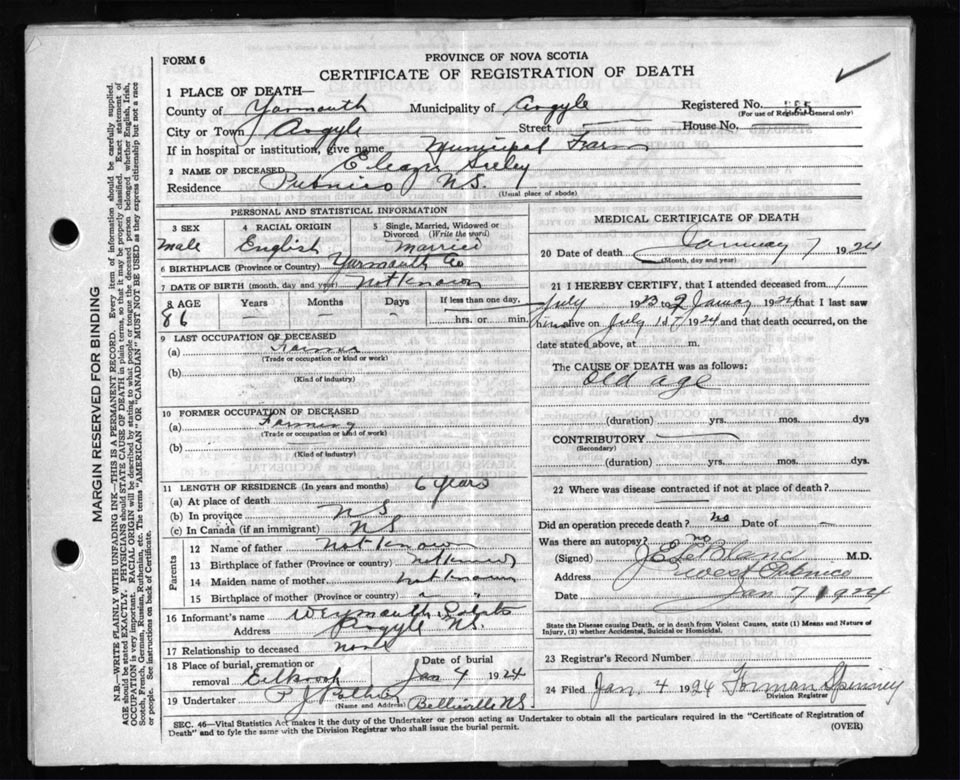 FORM 6
PROVINCE OF NOVA SCOTIA
CERTIFICATE OF REGISTRATION OF DEATH
1 PLACE OF DEATH—
County of Yarmouth Municipality of Argyle Registered No. 585
(For use of Registrar General only)
City or Town Argyle Street House No.
If in hospital or institution, give name Municipal Farm
2 NAME OF DECEASED Eleazer
Residence Pubnico N.S.
(Usual place of abode)
PERSONAL AND STATISTICAL INFORMATION
3 SEX 4 RACIAL ORIGIN 5 Single, Married, Widowed or Divorced (Write the word)
male English married
6 BIRTHPLACE (Province or Country) Yarmouth Co
7 DATE OF BIRTH (month, day and year) not known
8 AGE Years Months Days If less than one day,
86 — — — hrs. or min.
9 LAST OCCUPATION OF DECEASED
(a) Farmer
(Trade or occupation or kind or work)
(b)
(Kind of industry)
10 FORMER OCCUPATION OF DECEASED
(a) Farming
(Trade or occupation or kind of work)
(b)
(Kind of industry)
11 LENGTH OF RESIDENCE (In years and months) 6 years
(a) At place of death
(b) In province N S
(c) In Canada (if an immigrant) N S
Parents
12 Name of father not known
13 Birthplace of father (Province or country) not known
14 Maiden name of mother not known
15 Birthplace of mother (Province or country) " "
16 Informant's name Weymouth
Address Argyle N.S.
17 Relationship to deceased none
18 Place of burial, cremation or removal Date of burial
Jan 4 1924
19 Undertaker P J Belleville N.S.
(Name and Address)
MEDICAL CERTIFICATE OF DEATH
20 Date of death January 1 1924
(Month, day and year)
21 I HEREBY CERTIFY, that I attended deceased from 1
July 1923 to 2 January 1924 that I last saw
him alive on July 1st 1924 and that death occurred, on the
date stated above, at m.
The CAUSE OF DEATH was as follows:
old age
(duration) yrs. mos. dys
CONTRIBUTORY
(Secondary)
(duration) yrs. mos. dys.
22 Where was disease contracted if not at place of death?
Did an operation precede death? no Date of —
Was there an autopsy? no
(Signed) J E LeBlanc M.D.
Address West Pubnico
Date Jan 7 1924
State the Disease causing Death, or in death from Violent Causes, state (1) Means and Nature of
Injury, (2) whether Accidental, Suicidal or Homicidal.
23 Registrar's Record Number
24 Filed Jan. 4 1924 Forman Spinney
Division Registrar
SEC. 46—Vital Statistics Act makes it the duty of the Undertaker or person acting as Undertaker to obtain all the particulars required in the "Certificate of Registration of
Death" and to fyle the same with the Division Registrar who shall issue the burial permit. (OVER)
MARGIN RESERVED FOR BINDING
N.B.—WRITE PLAINLY WITH UNFADING INK—THIS IS A PERMANENT RECORD. Every item of information should be carefully supplied.
AGE should be stated EXACTLY. PHYSICIANS should STATE CAUSE OF DEATH in plain terms, so that it may be properly classified. Exact statement of
OCCUPATION is very important. RACIAL ORIGIN will be described by stating to what people or tongue the deceased person belonged whether English, Irish,
Scotch, French, German, Russian, Ruthenian, etc. The terms "AMERICAN" OR "CANADIAN" MUST NOT BE USED as they express citizenship but not a race
or people. See instructions on back of Certificate.